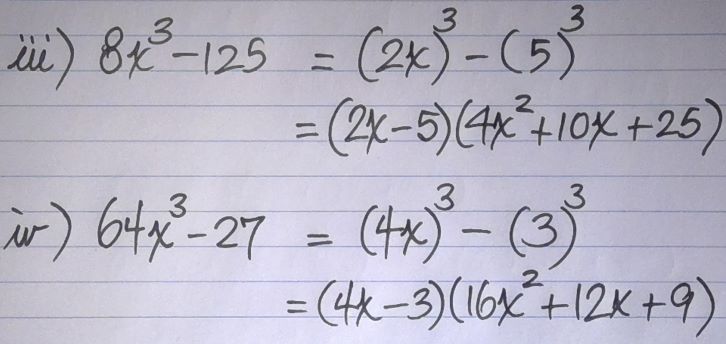 iii) 8x³-125 = (2x)³-(5)³
=(2x-5)(4x²+10x+25)
iv) 64x³-27 = (4x)³-(3)³
=(4x-3)(16x²+12x+9)